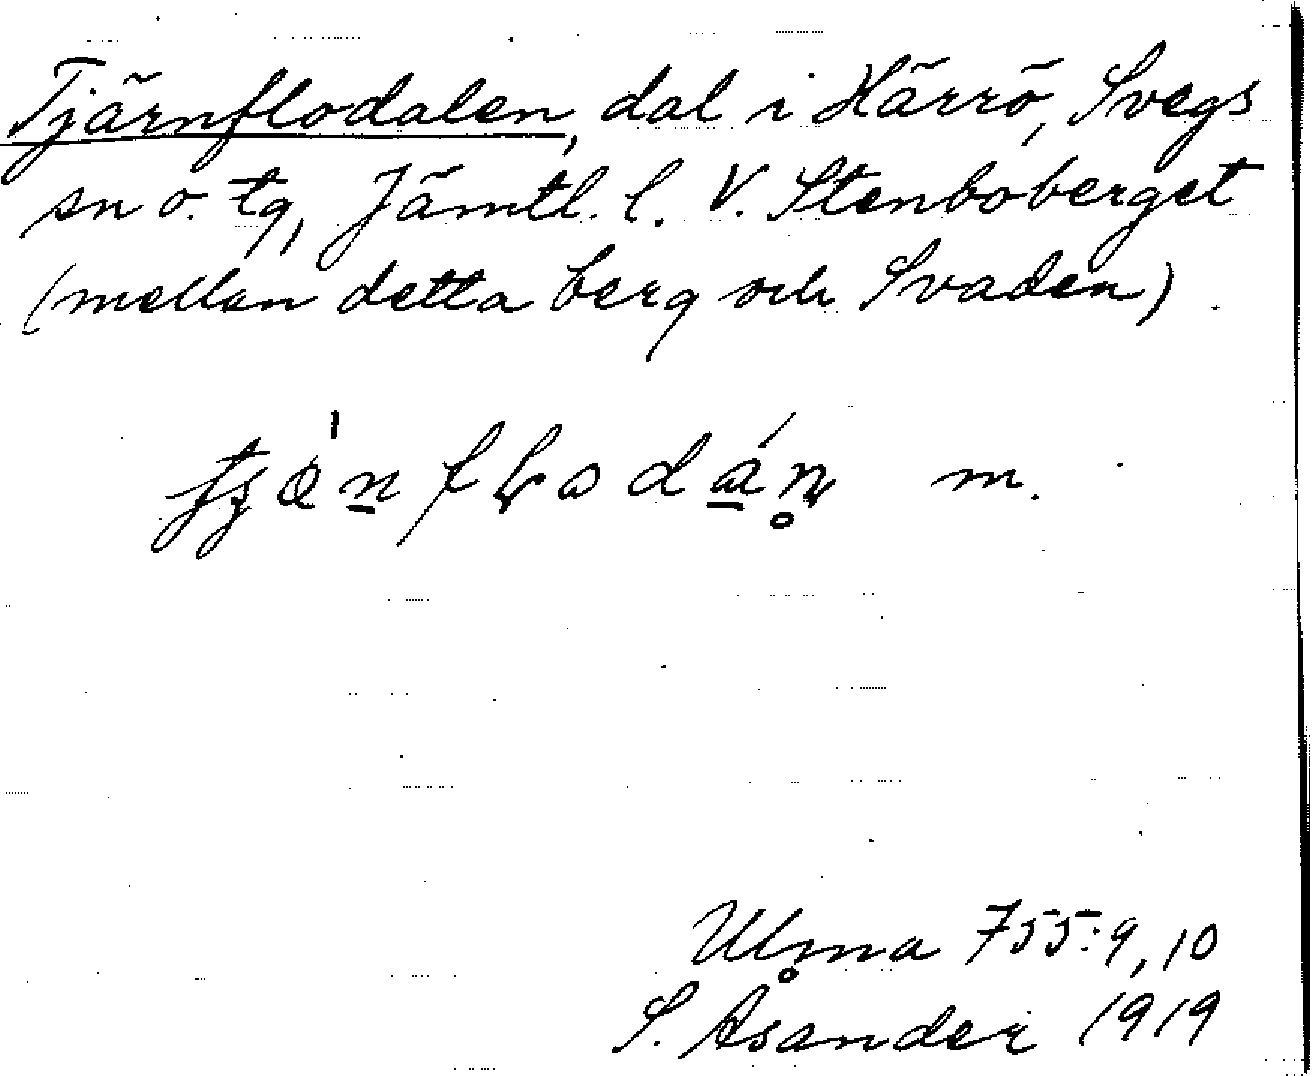 Tjärnflodalen, dal i Härrö, Svegs
sn o. tg, Jämtl. l. V. Stenboberget
(mellan detta berg och Svaden)
m.
Ulma 755:9, 10
S. Åsander 1919